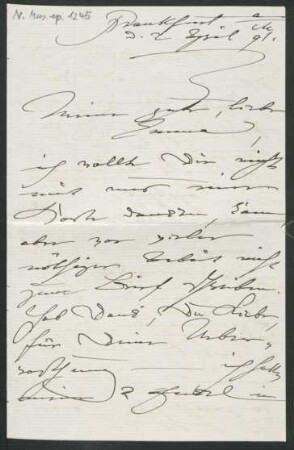 N. Mus. ep. 1245
Frankfurt a/M
d. 2 April 91.
Meine gute, liebe
Emma,
ich wollte Dir nicht
mit nur einer
Karte danken, kam
aber vor vieler
nöthiger Arbeit nicht
zum Brief schreiben.
Hab Dank, Du Liebe,
für Deine Ueber-
raschung ich hatte
meine 2 in